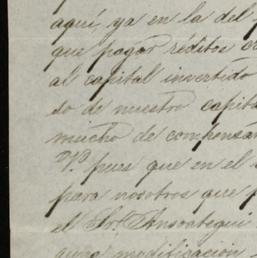 aquí, ya en la del
que pagar réditos
al capital invertido
do de nuestro capita
mucho de compensar
Vd. pues que en el
para nosotros que
el Sr. Ansoategui
modificación